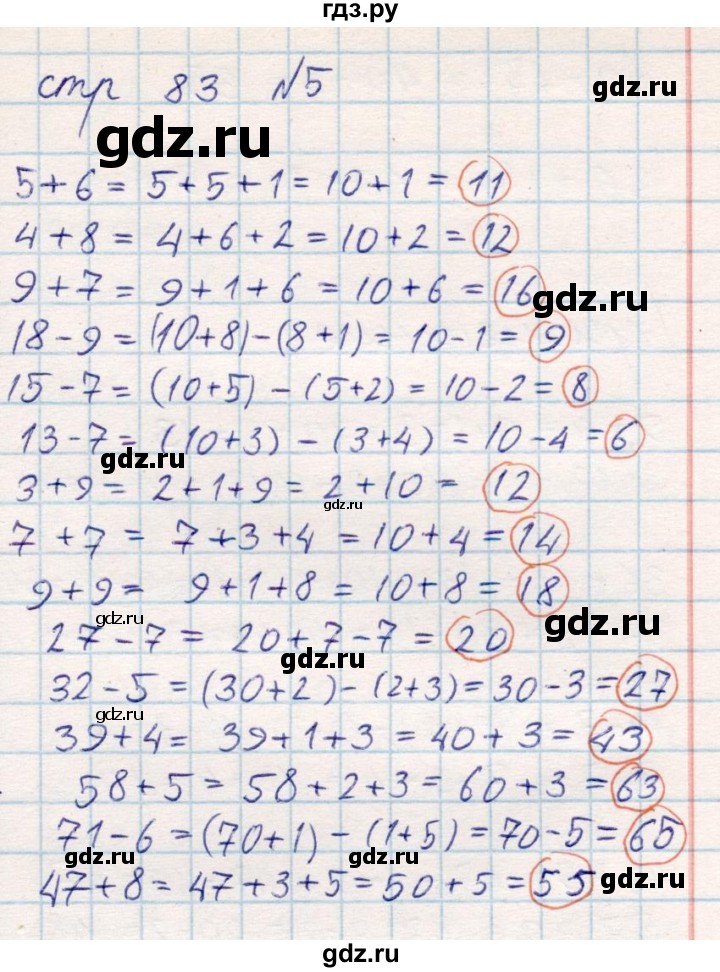 гдз.ру
gdz.ru
стр 83 №5
gdz.ru
5+6 = 5+5+1 = 10+1 = 11
4+8 = 4+6+2 = 10+2 = 12
9+7 = 9+1+6 = 10+6 = 16
gdz.ru
18-9 = (10+8)-(8+1) = 10-1 = 9
15-7 = (10+5) - (5+2) = 10-2 = 8
13-7 = (10+3) - (3+4) = 10-4 = 6
gdz.ru
3+9 = 2+1+9 = 2+10 = 12
gdz.ru
7+7 = 7+3+4 = 10+4 = 14
9+9 = 9+1+8 = 10+8 = 18
gdz.ru
gdz.ru
27-7 = 20+7-7 = 20
gdz.ru
32-5 = (30+2)-(2+3) = 30-3 = 27
gdz.ru
39+4 = 39+1+3 = 40+3 = 43
58+5 = 58+2+3 = 60+3 = 63
gdz.ru
71-6 = (70+1) - (1+5) = 70-5 = 65
gdz.ru
gdz.ru
47+8 = 47+3+5 = 50+5 = 55
gdz.ru
gdz.ru